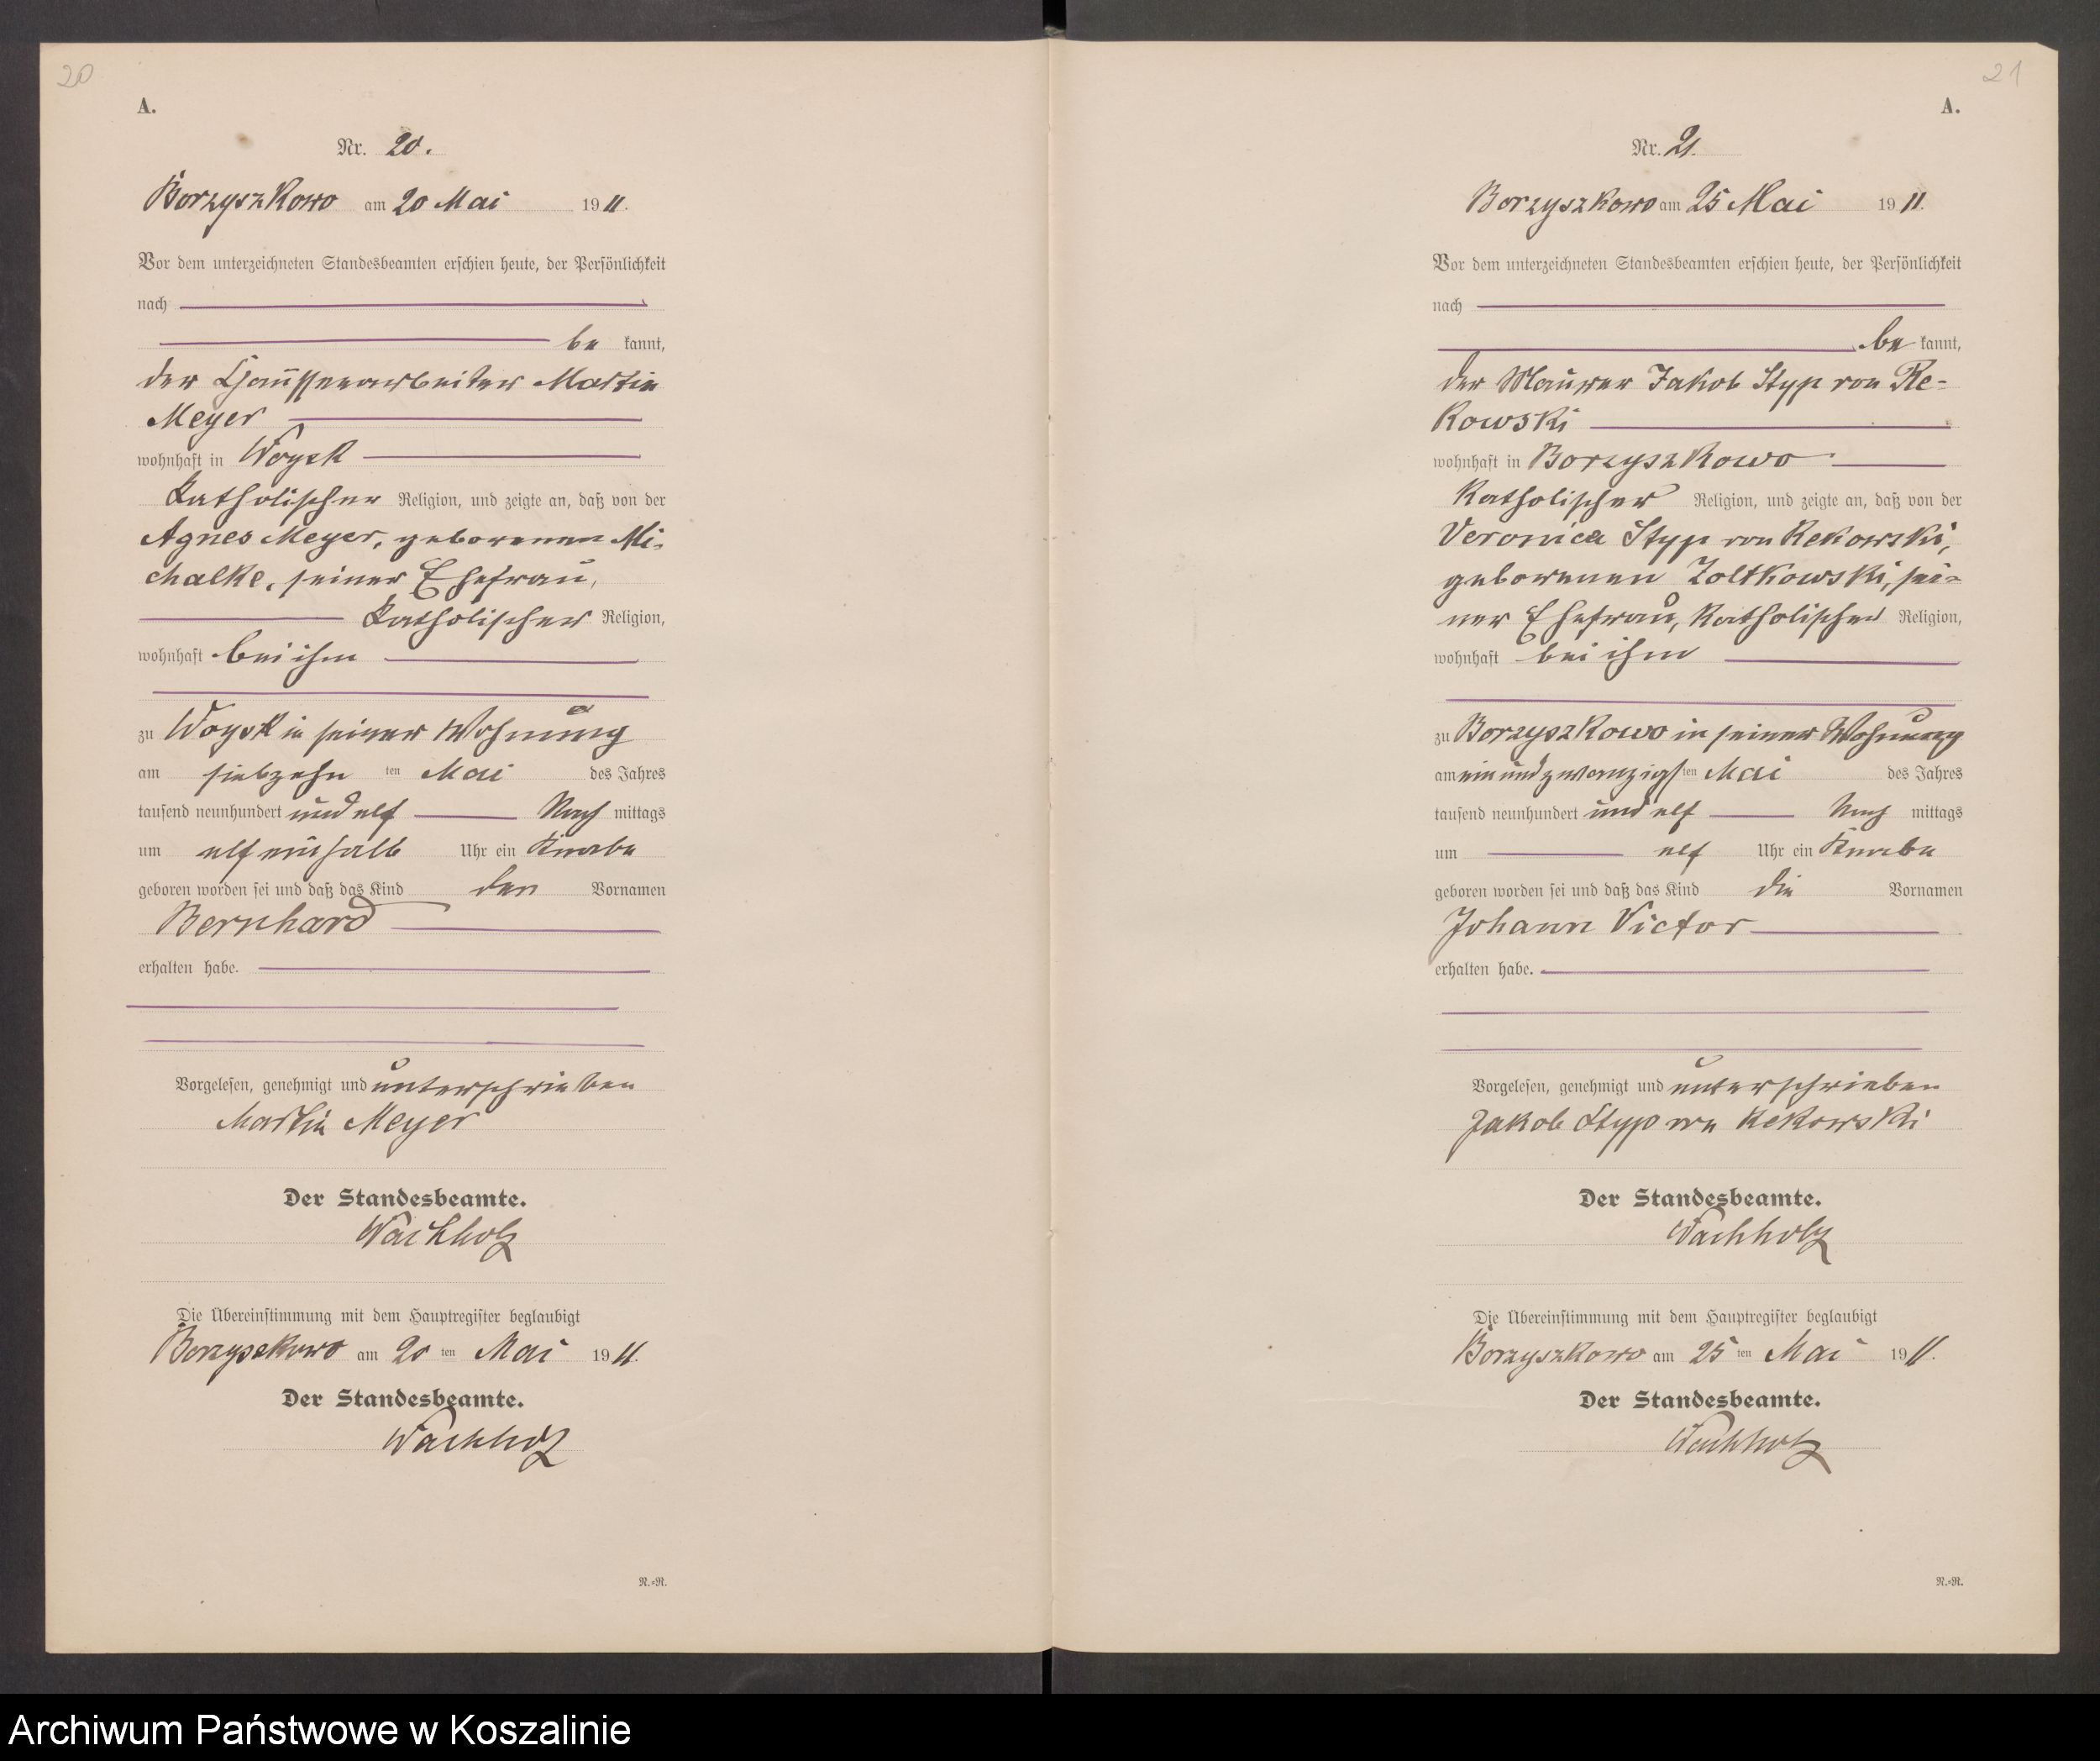 20
A.
Nr. 20.
Borzyszkowo am 20 Mai 1911.
Vor dem unterzeichneten Standesbeamten erschien heute, der Persönlichkeit
nach
be kannt,
der Chausseearbeiter Martin
Meyer
wohnhaft in Woysk
katholischer Religion, und zeigte an, daß von der
Agnes Meyer, geborenen Mi-
chalke, seiner Ehefrau,
katholischer Religion,
wohnhaft bei ihm
zu Woysk in seiner Wohnung
am siebzehn ten Mai des Jahres
tausend neunhundert und elf Nach mittags
um elf einhalb Uhr ein Knabe
geboren worden sei und daß das Kind den Vornamen
Bernhard
erhalten habe.
Vorgelesen, genehmigt und unterschrieben
Martin Meyer
Der Standesbeamte.
Wachholz
Die Übereinstimmung mit dem Hauptregister beglaubigt
Borzyszkowo am 20 ten Mai 1911.
Der Standesbeamte.
Wachholz
N.=R.
21
A.
Nr. 21.
Borzyszkowo am 25 Mai 1911.
Vor dem unterzeichneten Standesbeamten erschien heute, der Persönlichkeit
nach
be kannt,
der Maurer Jakob Styp von Re-
kowski
wohnhaft in Borzyszkowo
katholischer Religion, und zeigte an, daß von der
Veronica Styp von Rekowski,
geborenen Zoltkowski, sei-
ner Ehefrau, katholischer Religion,
wohnhaft bei ihm
zu Borzyszkowo in seiner Wohnung
am ein und zwanzigsten Mai des Jahres
tausend neunhundert und elf Nach mittags
um elf Uhr ein Knabe
geboren worden sei und daß das Kind die Vornamen
Johann Victor
erhalten habe.
Vorgelesen, genehmigt und unterschrieben
Jakob Styp von Rekowski
Der Standesbeamte.
Wachholz
Die Übereinstimmung mit dem Hauptregister beglaubigt
Borzyszkowo am 25 ten Mai 1911.
Der Standesbeamte.
Wachholz
N.=R.
Archiwum Państwowe w Koszalinie